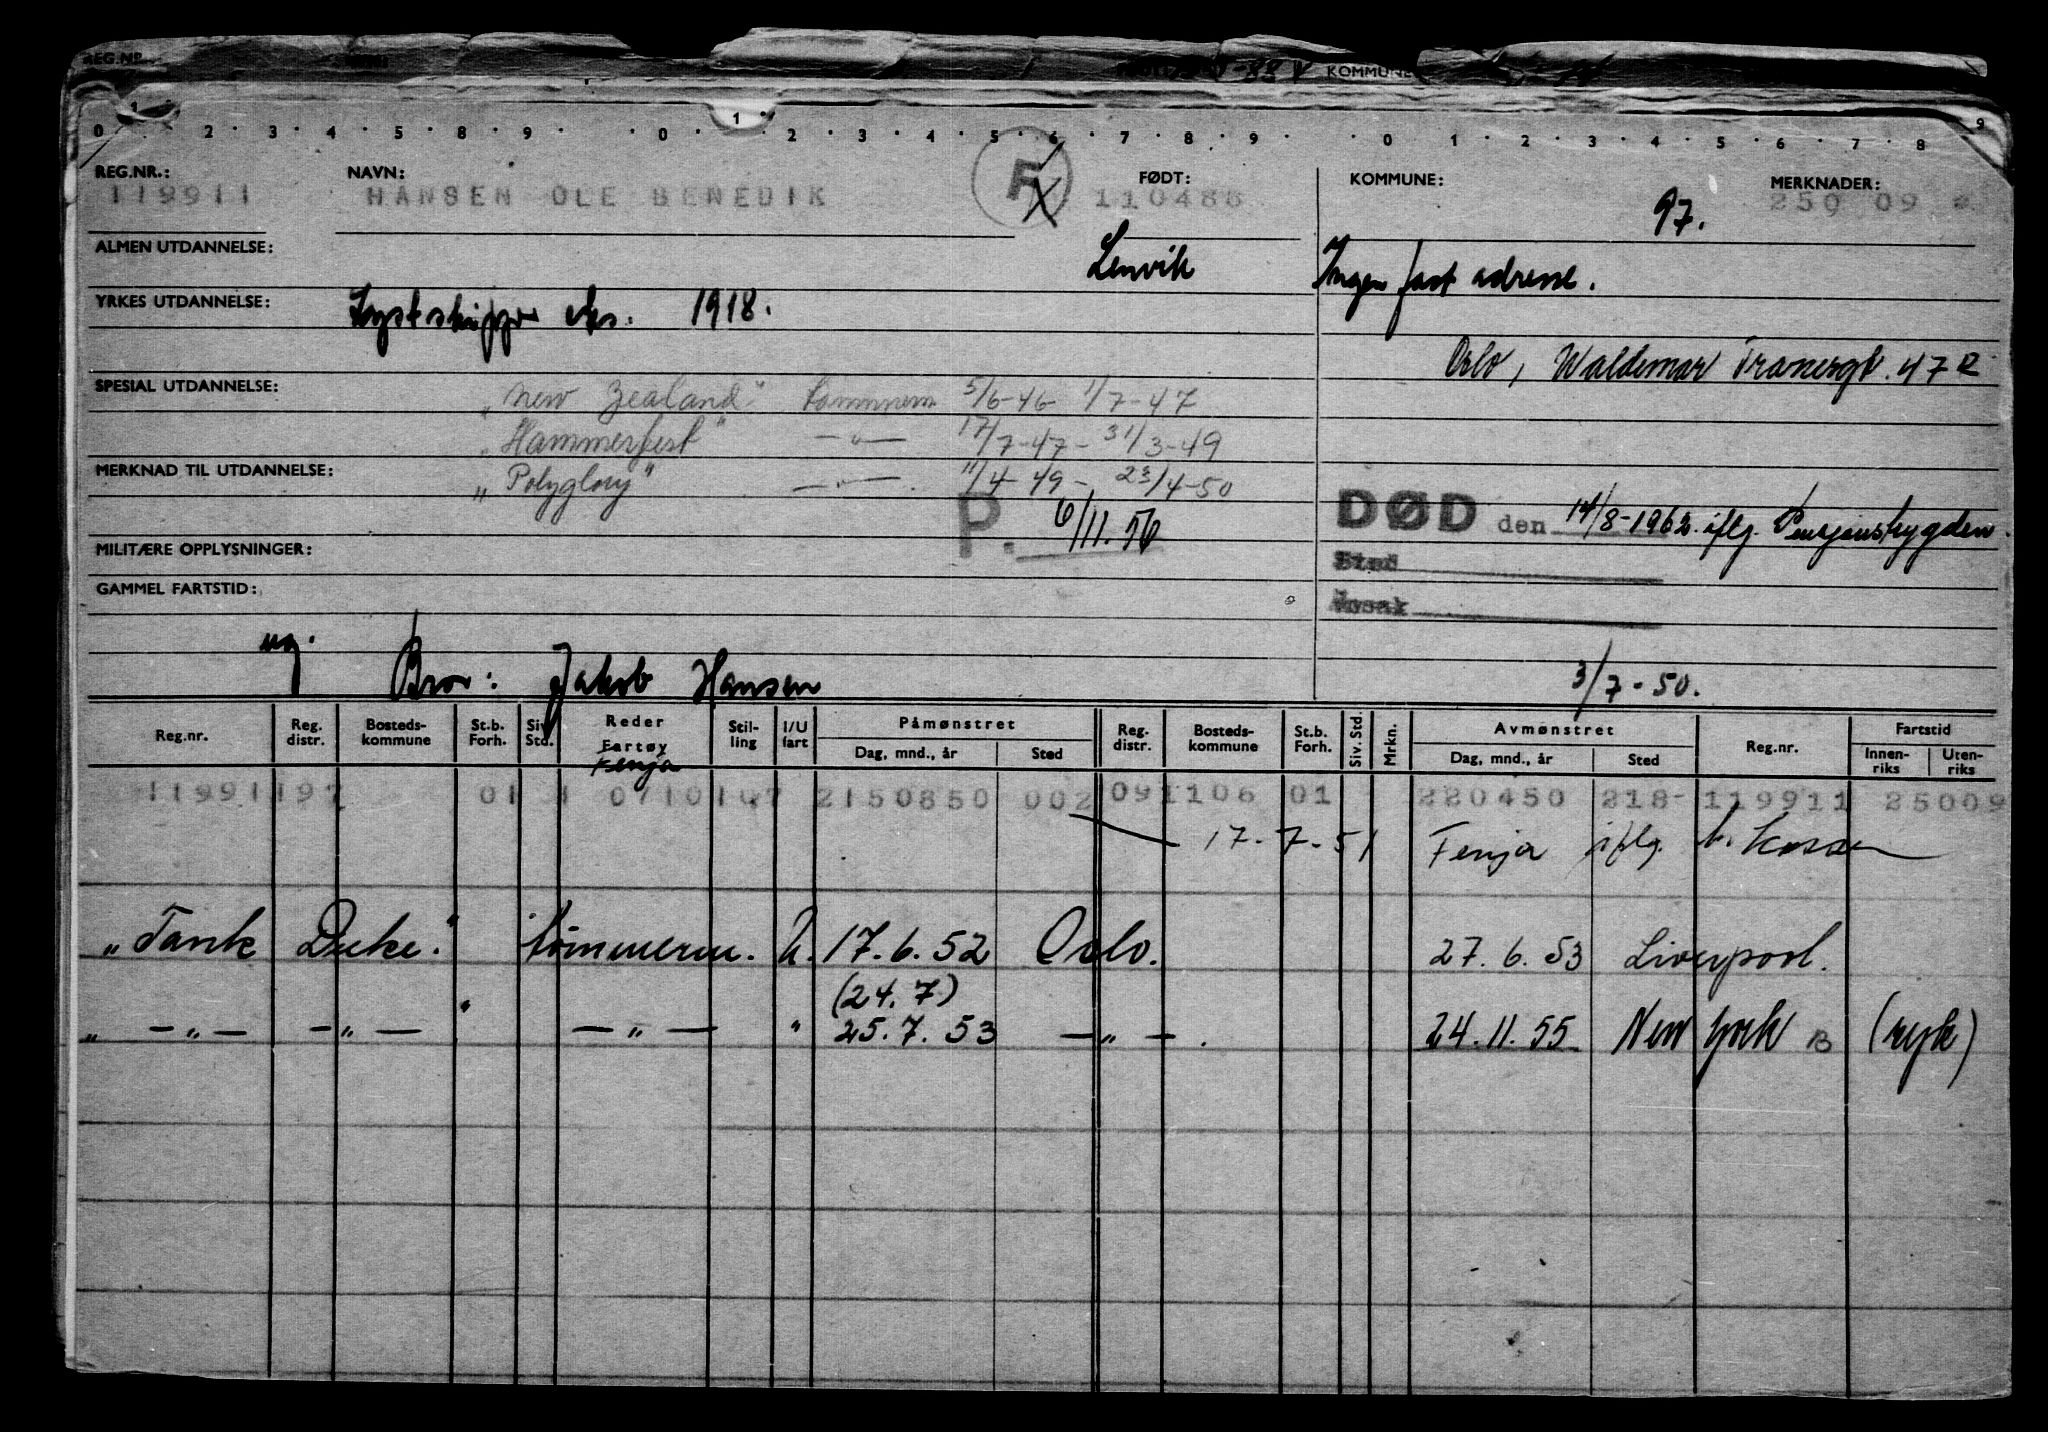 REG.NR.
KOMMUNE
0 1 2 3 4 5 8 9 0 1 2 3 4 5 6 7 8 9 0 1 2 3 4 5 6 7 8 9
REG.NR.: NAVN: F FØDT: KOMMUNE: MERKNADER:
119911 HANSEN OLE BENEDIK 110488 250 09
97.
ALMEN UTDANNELSE: Lenvik Ingen fast adresse.
YRKES UTDANNELSE: Kystskipper eks. 1918.
Oslo, Waldemar Tranesgt. 47
SPESIAL UTDANNELSE: "New Zealand" tømmerm 5/6-46 1/7-47
"Hammerfest" —"— 17/7-47 - 31/3-49
MERKNAD TIL UTDANNELSE: "Polyglory" —"—. 11/4-49 - 23/4-50
P. 6/11.56 DØD den 14/8-1962 iflg. Pensjonstrygden.
MILITÆRE OPPLYSNINGER: Sted
GAMMEL FARTSTID: Årsak
ug. Bror: Jakob Hansen 3/7-50.
Reg.nr. Reg. distr. Bosteds-kommune St.b. Forh. Siv. Std. Reder Fartøy Stil-ling I/U fart Påmønstret Dag, mnd., år Sted Reg. distr. Bosteds-kommune St.b. Forh. Siv. Std. Mrkn. Avmønstret Dag, mnd., år Sted Reg.nr. Fartstid Innen-riks Uten-riks
Fenja
119911 97 01 1 0710107 2150850 002 091106 01 220450 218- 119911 25009
17-7-51 Fenja iflg.
"Tank Duke." tømmerm. U. 17.6.52 Oslo. 27.6.53 Liverpool.
(24.7)
" —"— —"— " —"— " 25.7.53 —"—. 24.11.55 New York B (syk)